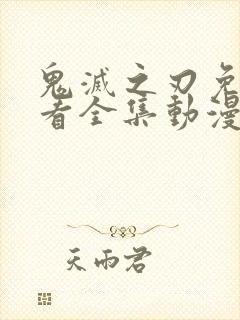 鬼滅之刃免
者全集動漫
天雨君